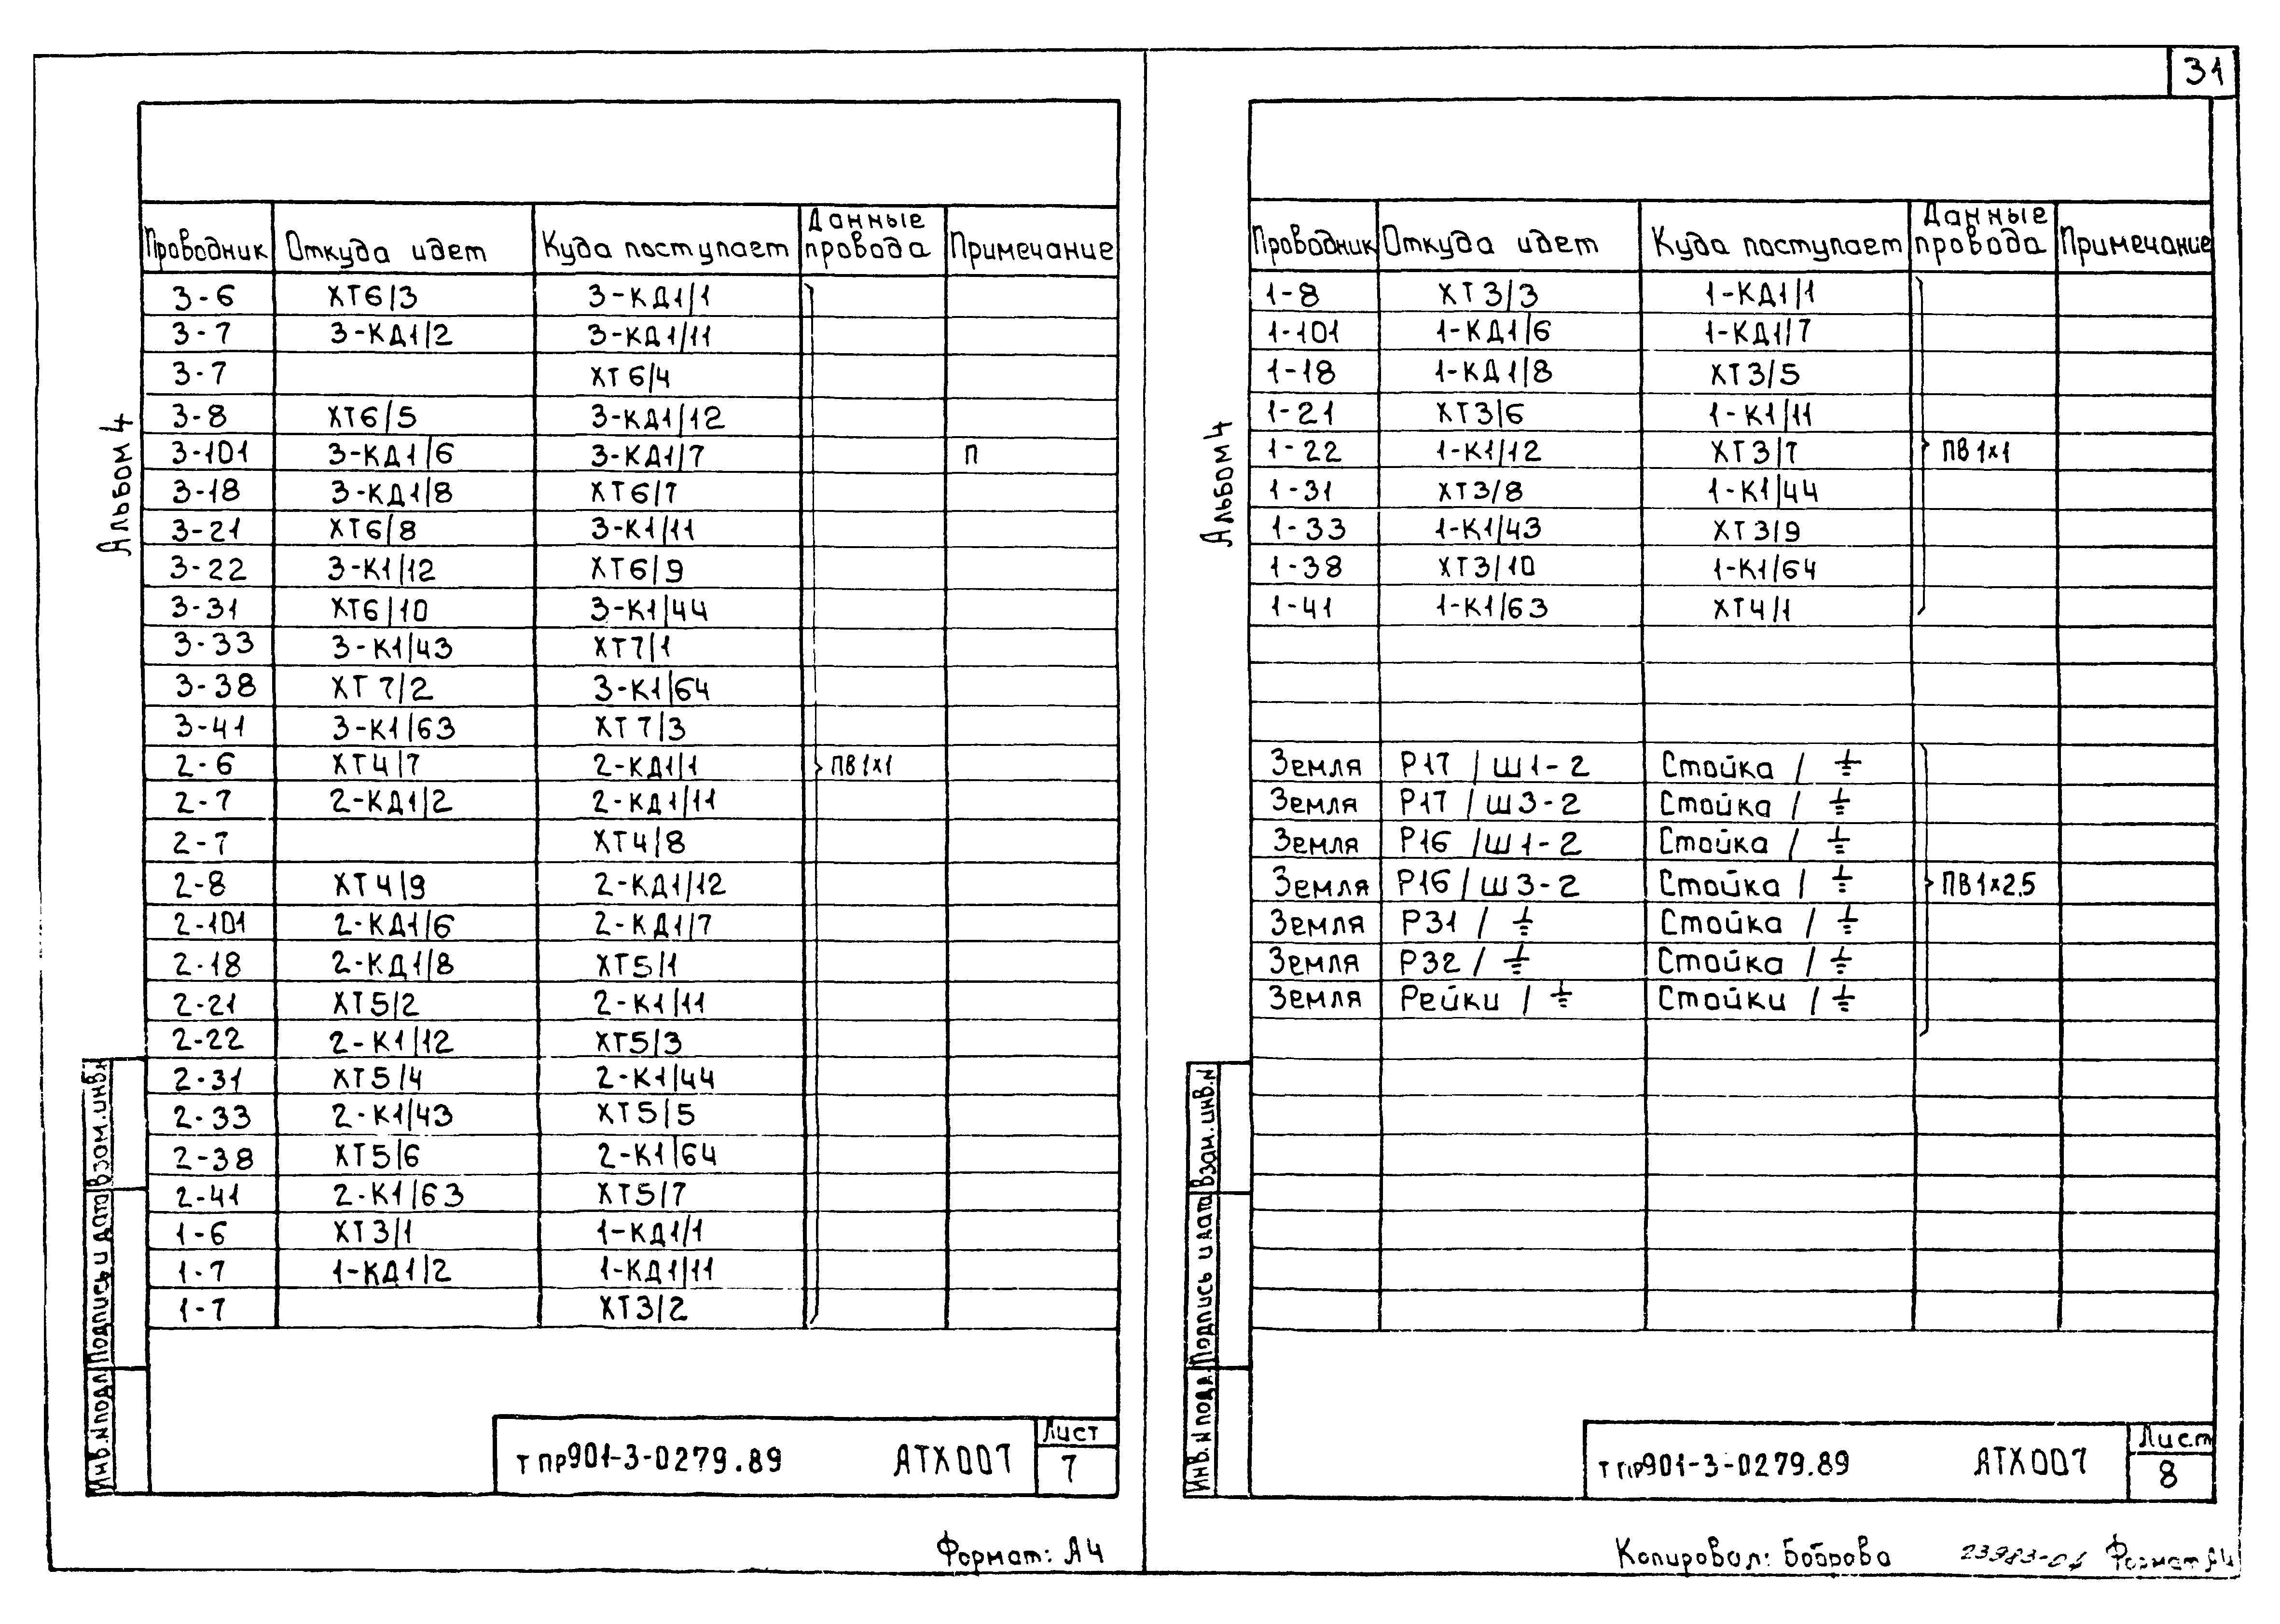 31
Альбом 4
Проводник Откуда идет Куда поступает Данные провода Примечание
3-6 ХТ6/3 3-КД1/1
3-7 3-КД1/2 3-КД1/11
3-7 ХТ6/4
3-8 ХТ6/5 3-КД1/12
3-101 3-КД1/6 3-КД1/7 П
3-18 3-КД1/8 ХТ6/7
3-21 ХТ6/8 3-К1/11
3-22 3-К1/12 ХТ6/9
3-31 ХТ6/10 3-К1/44
3-33 3-К1/43 ХТ7/1
3-38 ХТ7/2 3-К1/64
3-41 3-К1/63 ХТ7/3
2-6 ХТ4/7 2-КД1/1 ПВ1х1
2-7 2-КД1/2 2-КД1/11
2-7 ХТ4/8
2-8 ХТ4/9 2-КД1/12
2-101 2-КД1/6 2-КД1/7
2-18 2-КД1/8 ХТ5/1
2-21 ХТ5/2 2-К1/11
2-22 2-К1/12 ХТ5/3
2-31 ХТ5/4 2-К1/44
2-33 2-К1/43 ХТ5/5
2-38 ХТ5/6 2-К1/64
2-41 2-К1/63 ХТ5/7
1-6 ХТ3/1 1-КД1/1
1-7 1-КД1/2 1-КД1/11
1-7 ХТ3/2
Инв.N подл. Подпись и дата Взам.инв.N
т пр901-3-0279.89 АТХ007 Лист 7
Формат: А4
Альбом 4
Проводник Откуда идет Куда поступает Данные провода Примечание
1-8 ХТ3/3 1-КД1/1
1-101 1-КД1/6 1-КД1/7
1-18 1-КД1/8 ХТ3/5
1-21 ХТ3/6 1-К1/11
1-22 1-К1/12 ХТ3/7 ПВ1х1
1-31 ХТ3/8 1-К1/44
1-33 1-К1/43 ХТ3/9
1-38 ХТ3/10 1-К1/64
1-41 1-К1/63 ХТ4/1
Земля Р17 / Ш1-2 Стойка / ⏚
Земля Р17 / Ш3-2 Стойка / ⏚
Земля Р16 / Ш1-2 Стойка / ⏚
Земля Р16 / Ш3-2 Стойка / ⏚ ПВ1х2,5
Земля Р31 / ⏚ Стойка / ⏚
Земля Р32 / ⏚ Стойка / ⏚
Земля Рейки / ⏚ Стойки / ⏚
Инв.N подл. Подпись и дата Взам.инв.N
т пр901-3-0279.89 АТХ007 Лист 8
Копировал: Боброва 23983-04 Формат А4